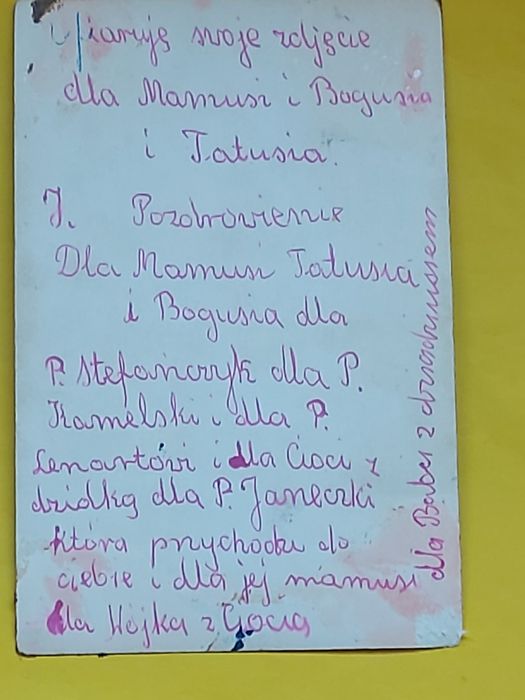 Ofiaruję swoje zdjęcie
dla Mamusi i Bogusia
i Tatusia.
J. Pozdrowienie
Dla Mamusi Tatusia
i Bogusia dla
P. Stefańczyk dla P.
Kamelski i dla P.
Lenartówi i dla Cioci z
dzidką dla P. Janeczki
która przychodzi do
ciebie i dla jej mamusi
dla Wojka z Gocią
dla Babci z dziadziusiem